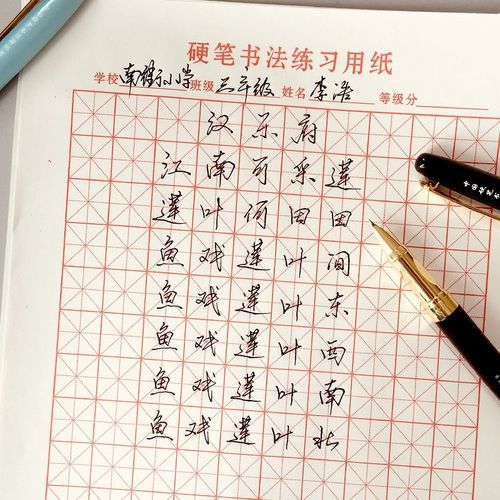 硬笔书法练习用纸
学校 南街小学 班级 三年级 姓名 李浩 等级分
汉乐府
江南可采莲
莲叶何田田
鱼戏莲叶间
鱼戏莲叶东
鱼戏莲叶西
鱼戏莲叶南
鱼戏莲叶北